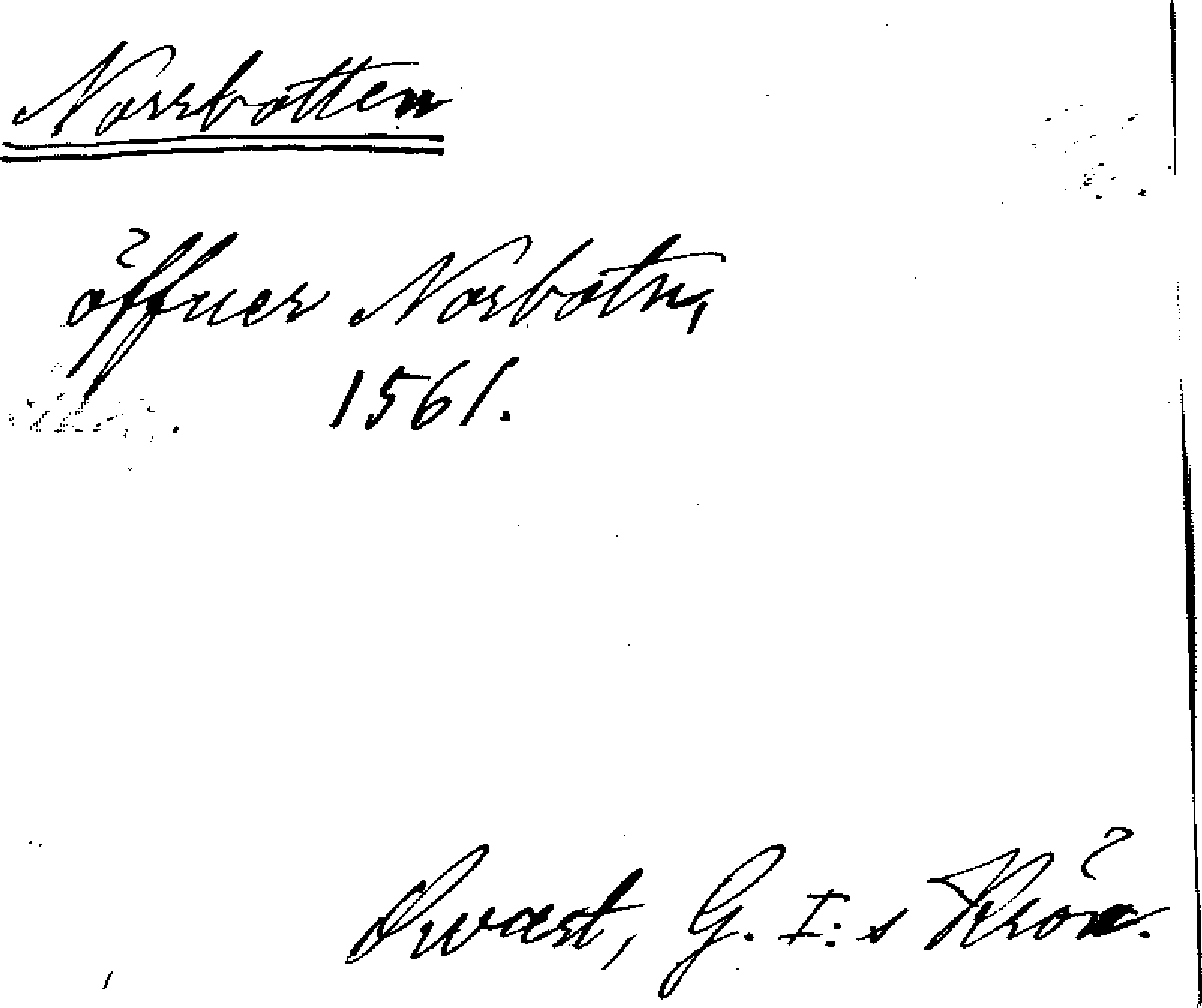 Norrbotten
öffuer Norbotn,
1561.
Swart, G. I:s Krön.